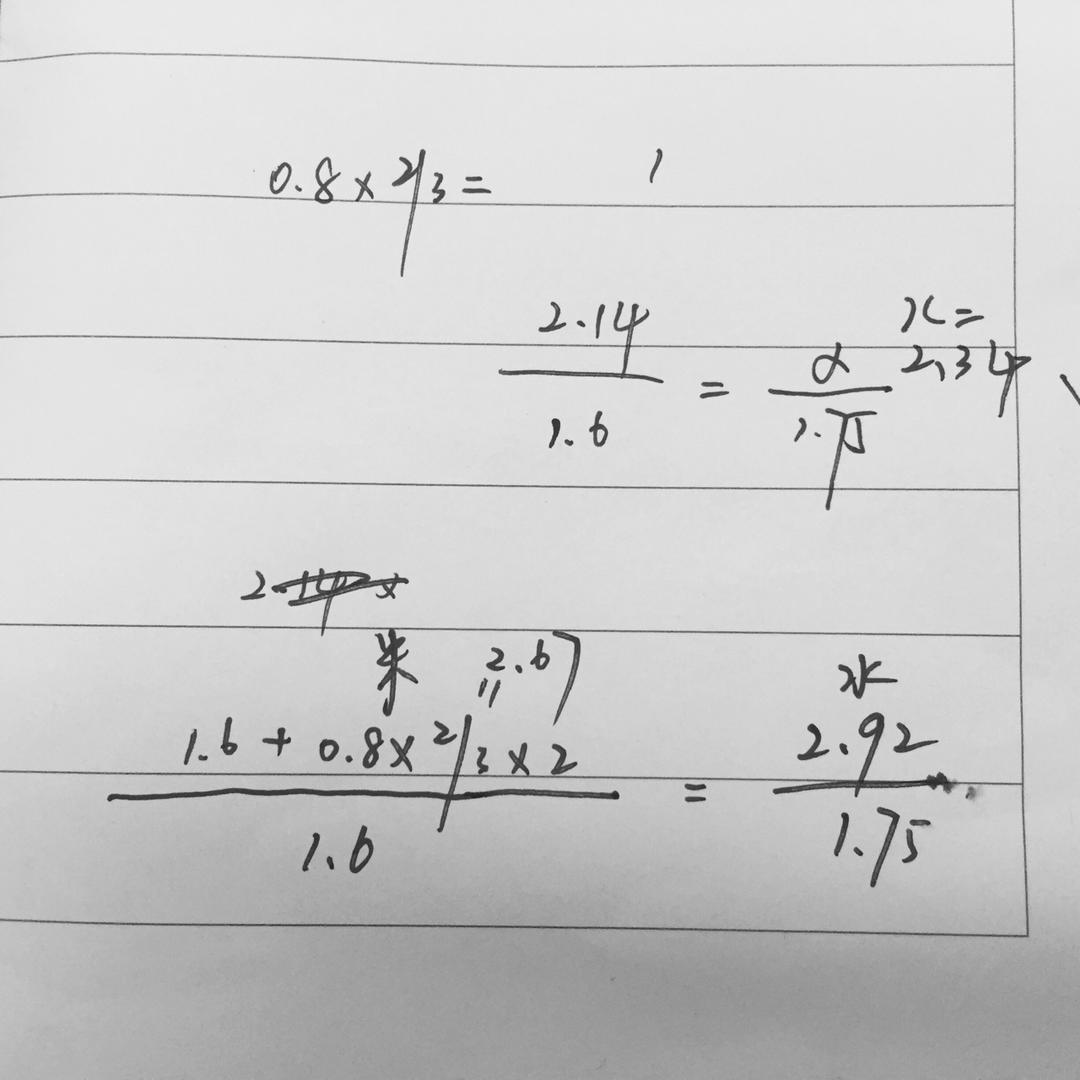 0.8 × 2/3 =
2.14 / 1.6 = x / 1.75 x = 2.34
米 2.67 水
1.6 + 0.8 × 2/3 × 2 / 1.6 = 2.92 / 1.75